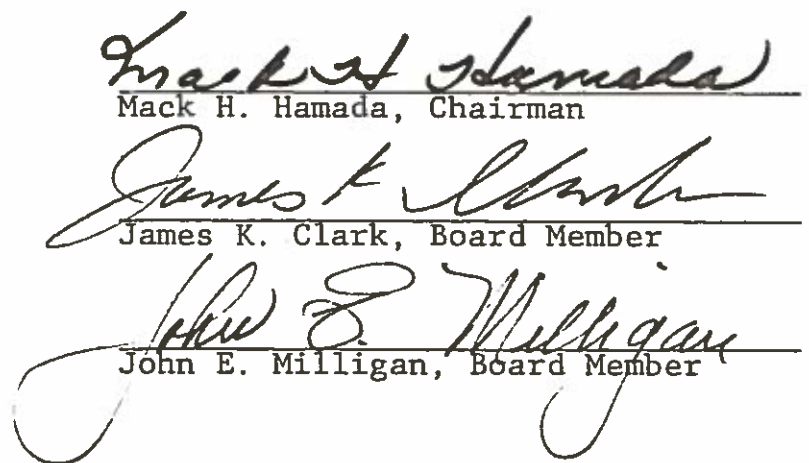 Mack H Hamada
Mack H. Hamada, Chairman
James K Clark
James K. Clark, Board Member
John E. Milligan
John E. Milligan, Board Member